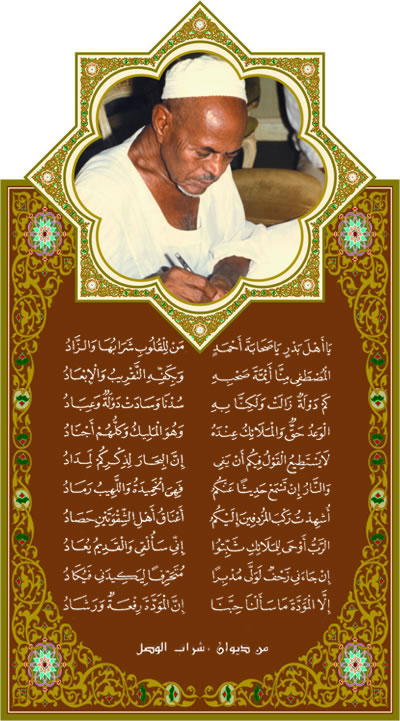 يَا أَهْلَ بَدْرٍ يَا صَحَابَةَ أَحْمَدٍ مَنْ لِلْقُلُوبِ شَرَابُهَا وَالزَّادُ
المُصْطَفَى مِنَّا أَئِمَّةُ صَحْبِهِ وَبِكَفِّهِ التَّقْرِيبُ وَالإِبْعَادُ
كَمْ دَوْلَةٌ زَالَتْ وَلَكِنَّا بِهِ سُدْنَا وَسَادَتْ دَوْلَةٌ وَعِبَادُ
الوَعْدُ حَقٌّ وَالمَلَائِكُ عِنْدَهُ وَهُوَ المَلِيكُ وَكُلُّهُمْ أَجْنَادُ
لَا يَسْتَطِيعُ القَوْلُ فِيكُمْ أَنْ يَفِي إِنَّ البِحَارَ لِذِكْرِكُمْ لَمِدَادُ
وَالنَّارُ إِنْ تَسْمَعْ حَدِيثًا عَنْكُمُ فَهِيَ الخَمِيدَةُ وَاللَّهِيبُ رَمَادُ
أُشْهِدْتُ رَكْبَ المُرْدِفِينَ إِلَيْكُمُ أَعْنَاقُ أَهْلِ الشِّقْوَتَيْنِ حَصَادُ
الرَّبُّ أَوْحَى لِلْمَلَائِكِ ثَبِّتُوا إِنِّي سَأُلْقِي وَالقَدِيمُ يُعَادُ
إِنْ جَاءَنِي زَحْفٌ لَوَلَّى مُدْبِرًا مُتَحَرِّفًا لِيَكِيدَنِي فَيُكَادُ
إِلَّا المَوَدَّةَ مَا سَأَلْنَا حِبَّنَا إِنَّ المَوَدَّةَ رِفْعَةٌ وَرَشَادُ
من ديوان شراب الوصل